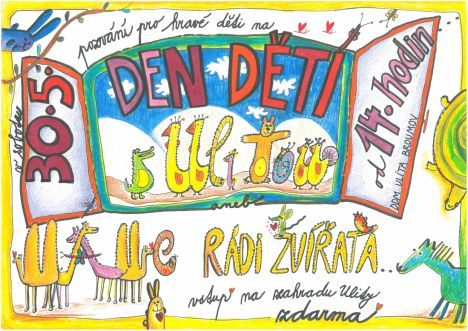 pozvání pro hravé děti na
DEN DĚTÍ
s Ulitou
v sobotu
30.5.
od 14.00 hodin...
DDM ULITA BROUMOV
aneb:
MÁME RÁDI ZVÍŘATA...
vstup na zahradu Ulity
zdarma